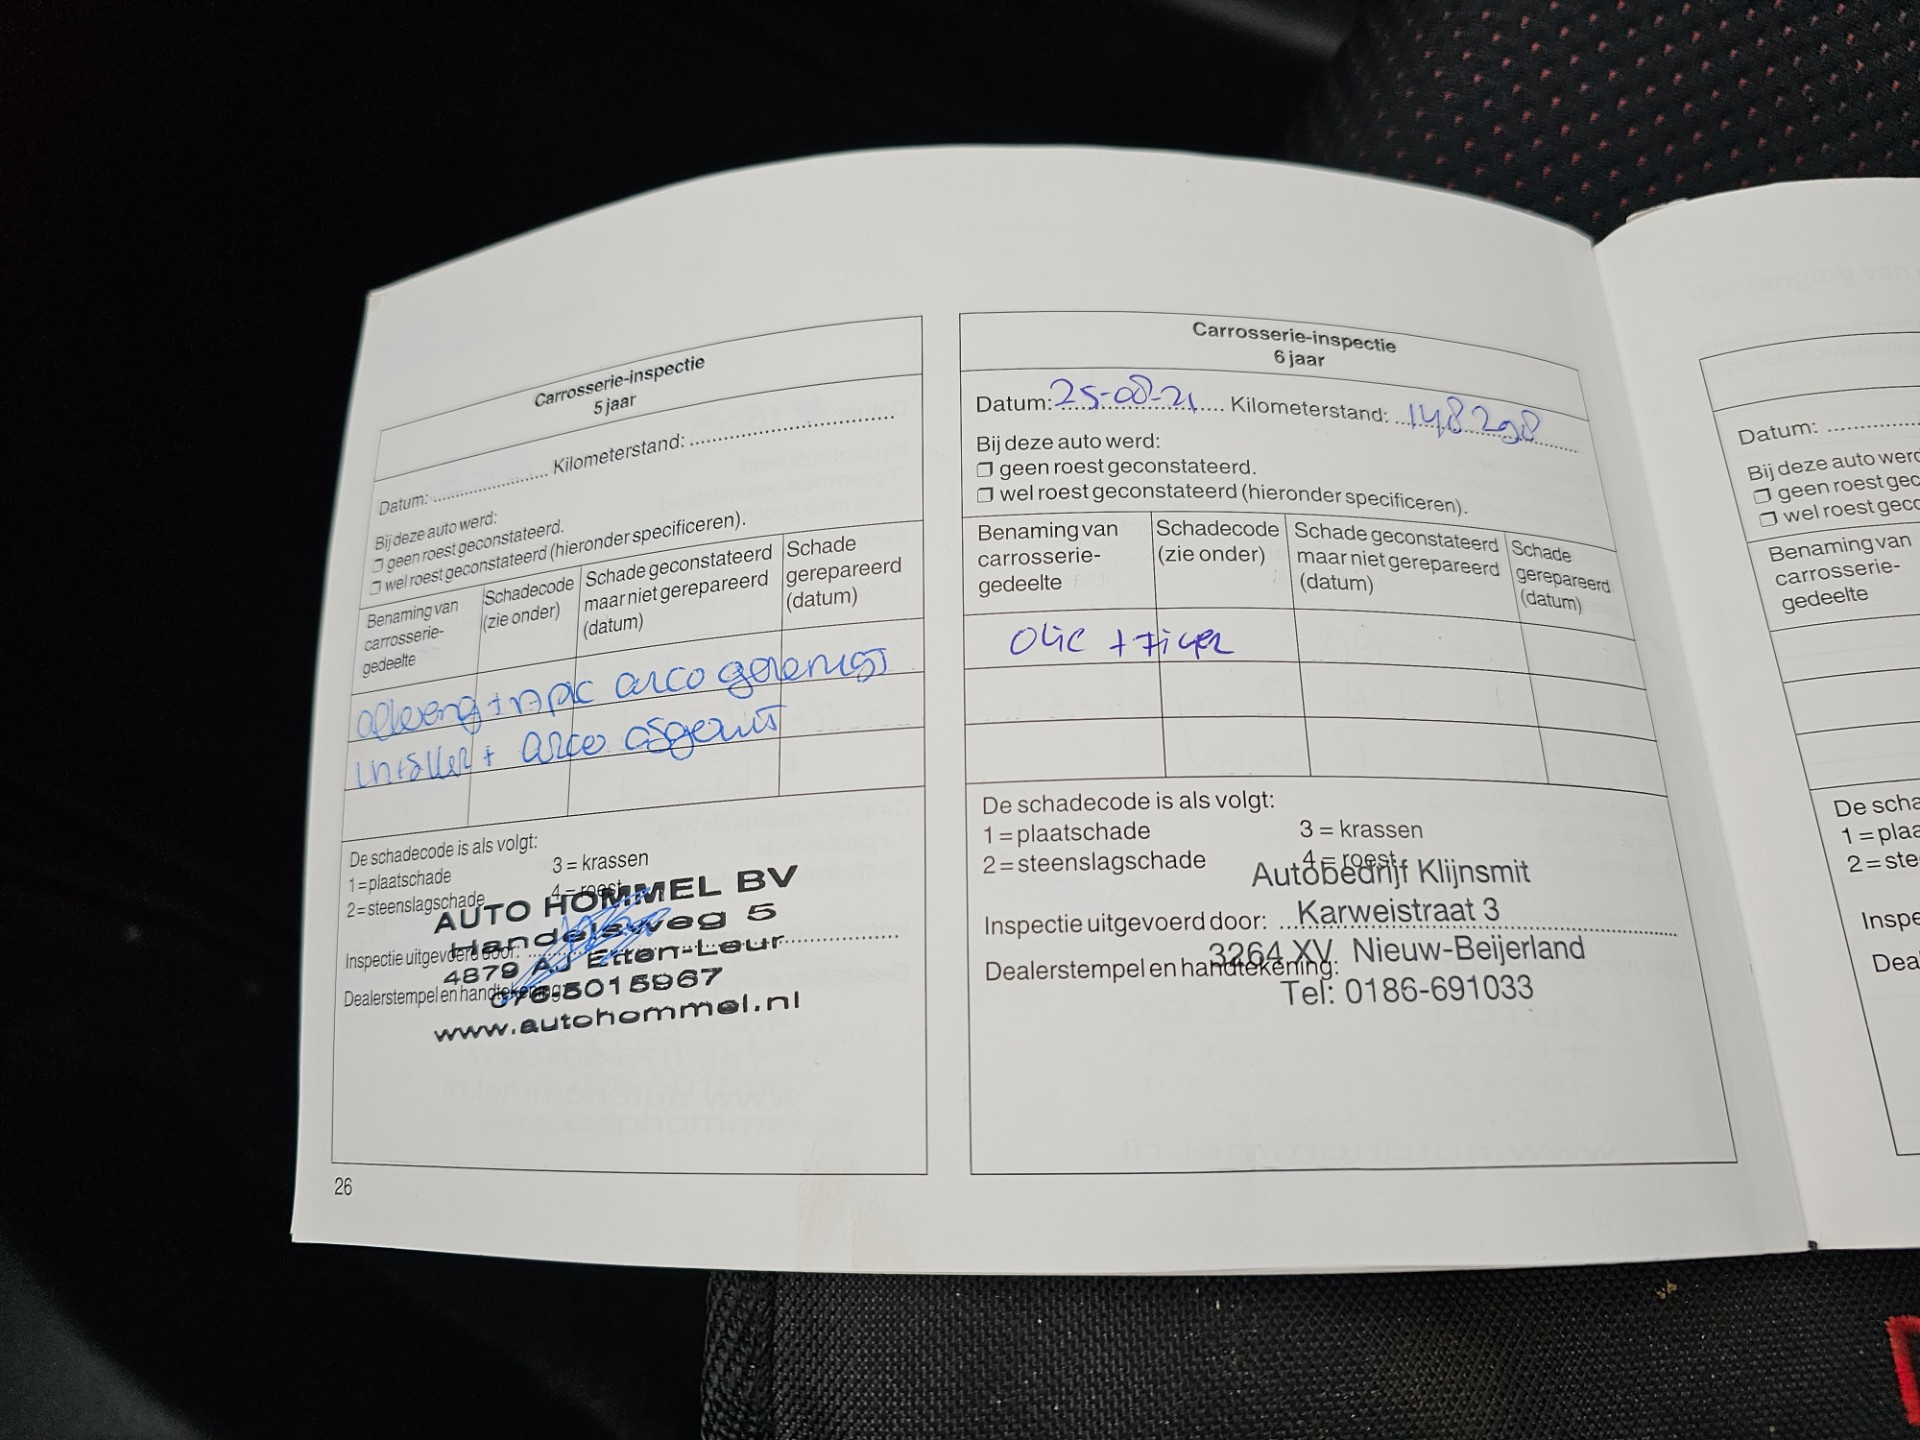 Carrosserie-inspectie
5 jaar
Datum: .................... Kilometerstand: ....................
Bij deze auto werd:
❒ geen roest geconstateerd.
❒ wel roest geconstateerd (hieronder specificeren).
Benaming van carrosserie-gedeelte
Schadecode (zie onder)
Schade geconstateerd maar niet gerepareerd (datum)
Schade gerepareerd (datum)
arco
+ arco
De schadecode is als volgt:
1 = plaatschade
3 = krassen
2 = steenslagschade
4 = roest
AUTO HOMMEL BV
Handelsweg 5
Inspectie uitgevoerd door: ....................
4879 AJ Etten-Leur
Dealerstempel en handtekening:
076-5015967
www.autohommel.nl
26
Carrosserie-inspectie
6 jaar
Datum: 25-08-21 Kilometerstand: 148298
Bij deze auto werd:
❒ geen roest geconstateerd.
❒ wel roest geconstateerd (hieronder specificeren).
Benaming van carrosserie-gedeelte
Schadecode (zie onder)
Schade geconstateerd maar niet gerepareerd (datum)
Schade gerepareerd (datum)
Olie +
De schadecode is als volgt:
1 = plaatschade
3 = krassen
2 = steenslagschade
4 = roest
Autobedrijf Klijnsmit
Inspectie uitgevoerd door: ....................
Karweistraat 3
3264 XV Nieuw-Beijerland
Dealerstempel en handtekening:
Tel: 0186-691033
Datum: ..............
Bij deze auto werd
❒ geen roest gec
❒ wel roest gecc
Benaming van carrosserie-gedeelte
De scha
1 = plaa
2 = ste
Inspe
Deal